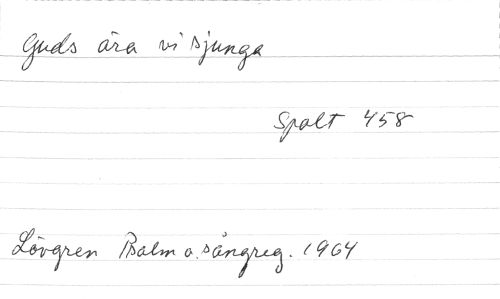 Guds ära vi sjunga
Spalt 458
Lövgren Psalm o. sångreg. 1964